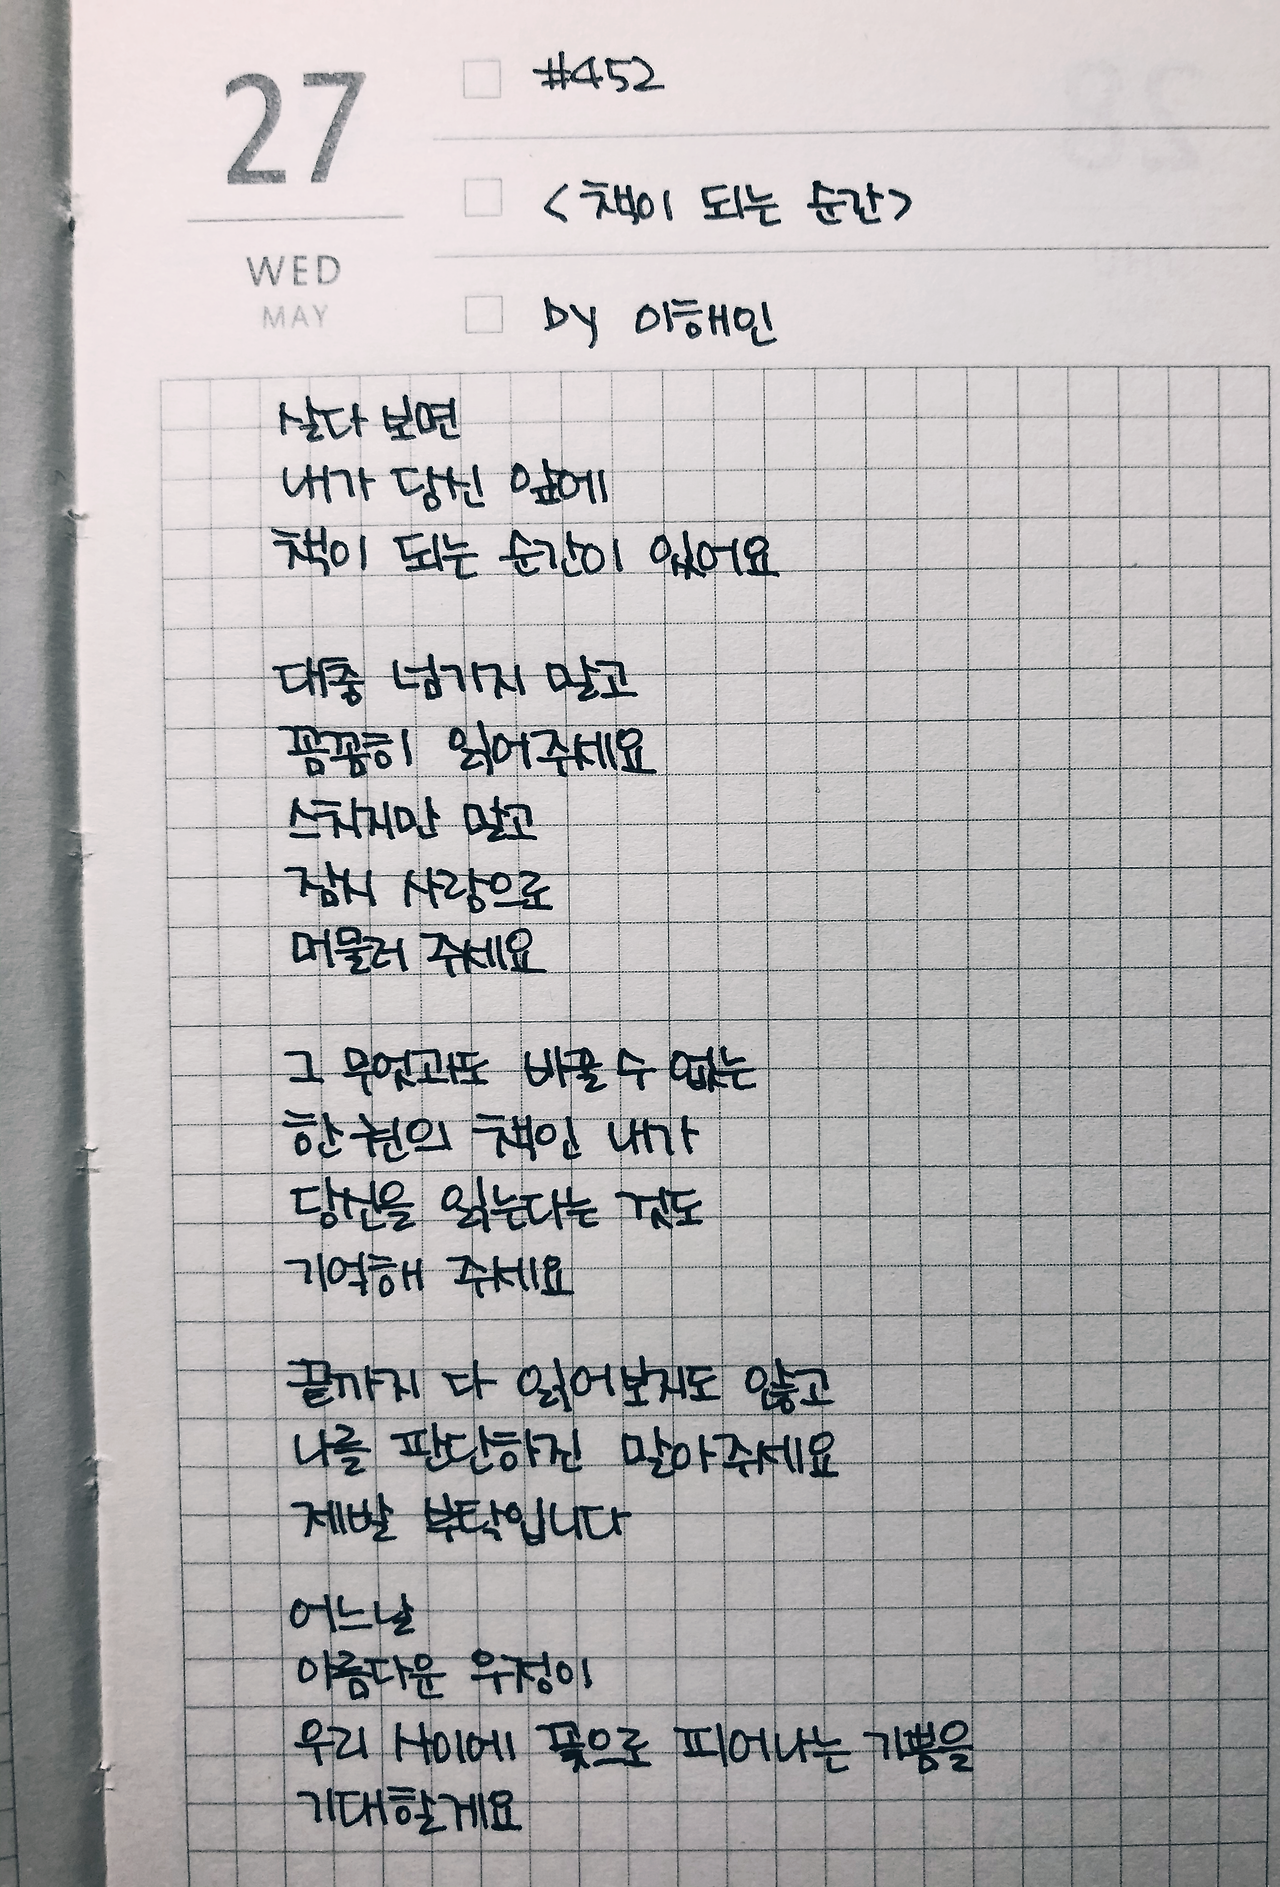 27
WED
MAY
#452
<책이 되는 순간>
by 이해인
살다 보면
내가 당신 앞에
책이 되는 순간이 있어요
대충 넘기지 말고
꼼꼼히 읽어주세요
스치지만 말고
잠시 사랑으로
머물러 주세요
그 무엇과도 바꿀 수 없는
한 권의 책인 내가
당신을 읽는다는 것도
기억해 주세요
끝까지 다 읽어보지도 않고
나를 판단하진 말아주세요
제발 부탁입니다
어느날
아름다운 우정이
우리 사이에 꽃으로 피어나는 기쁨을
기대할게요